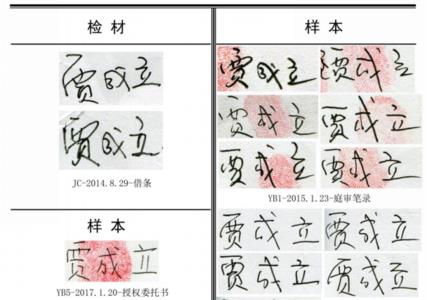 检材
贾成立
贾成立
JC-2014.8.29-借条
样本
贾成立
YB5-2017.1.20-授权委托书
样本
贾成立 贾成立
贾成立 贾成立
贾成立 贾成立
YB1-2015.1.23-庭审笔录
贾成立 贾成立
贾成立 贾成立